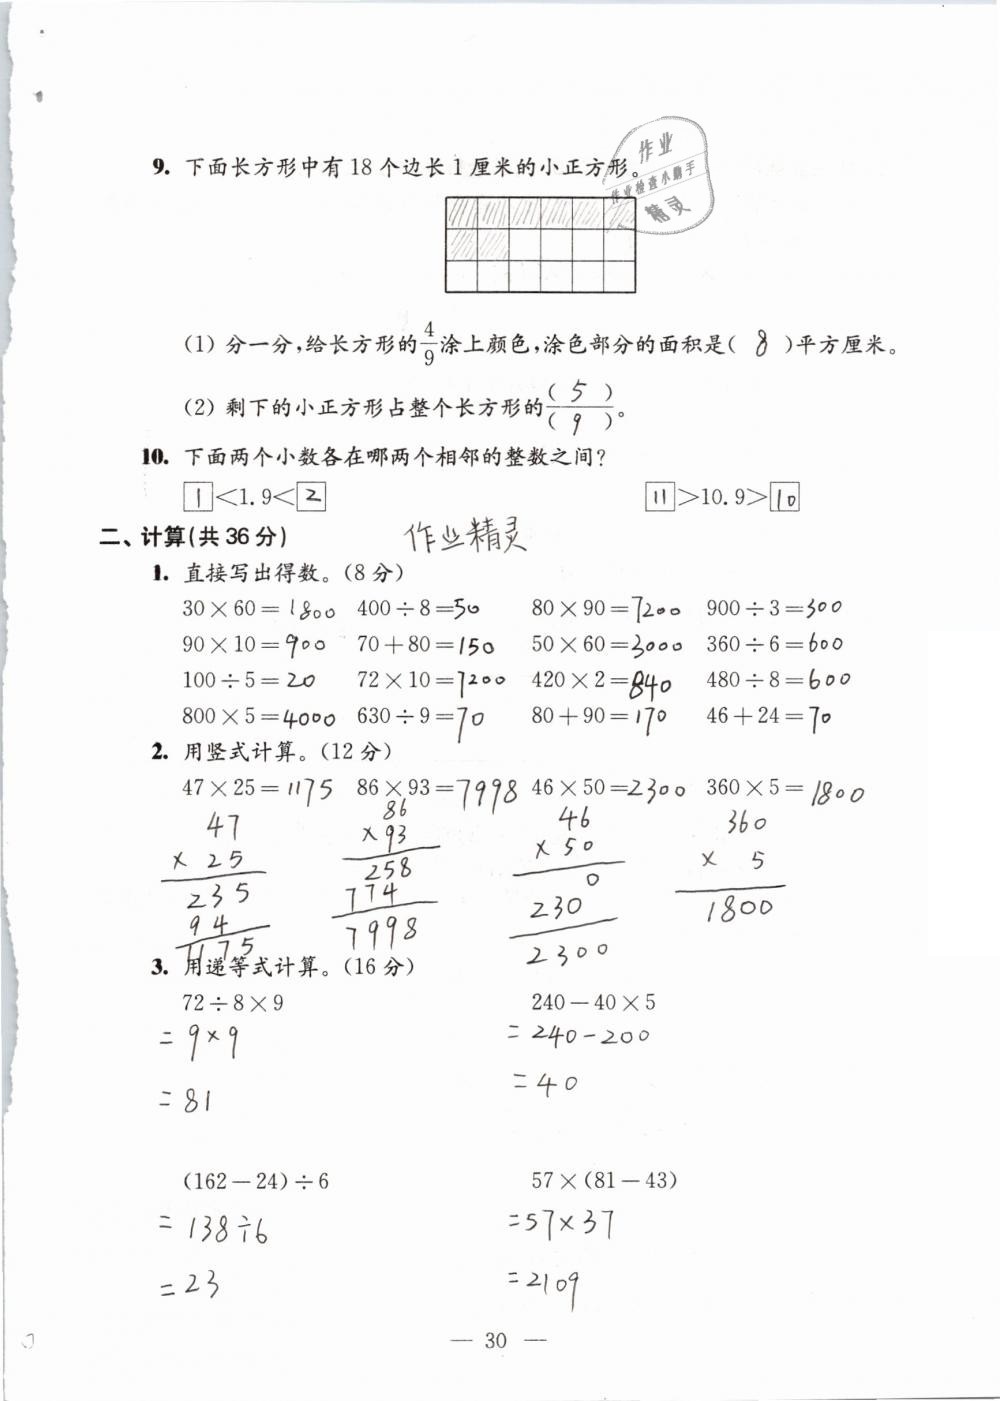 作业
作业检查小助手
精灵
9. 下面长方形中有 18 个边长 1 厘米的小正方形。
(1) 分一分,给长方形的4/9涂上颜色,涂色部分的面积是( 8 )平方厘米。
(2) 剩下的小正方形占整个长方形的( 5 )/( 9 )。
10. 下面两个小数各在哪两个相邻的整数之间?
1<1.9<2 11>10.9>10
二、计算(共 36 分) 作业精灵
1. 直接写出得数。(8 分)
30×60=1800 400÷8=50 80×90=7200 900÷3=300
90×10=900 70+80=150 50×60=3000 360÷6=600
100÷5=20 72×10=7200 420×2=840 480÷8=600
800×5=4000 630÷9=70 80+90=170 46+24=70
2. 用竖式计算。(12 分)
47×25=1175 86×93=7998 46×50=2300 360×5=1800
47 86 46 360
×25 ×93 ×50 × 5
235 258 0 1800
94 774 230
1175 7998 2300
3. 用递等式计算。(16 分)
72÷8×9 240-40×5
=9×9 =240-200
=81 =40
(162-24)÷6 57×(81-43)
=138÷6 =57×37
=23 =2109
— 30 —